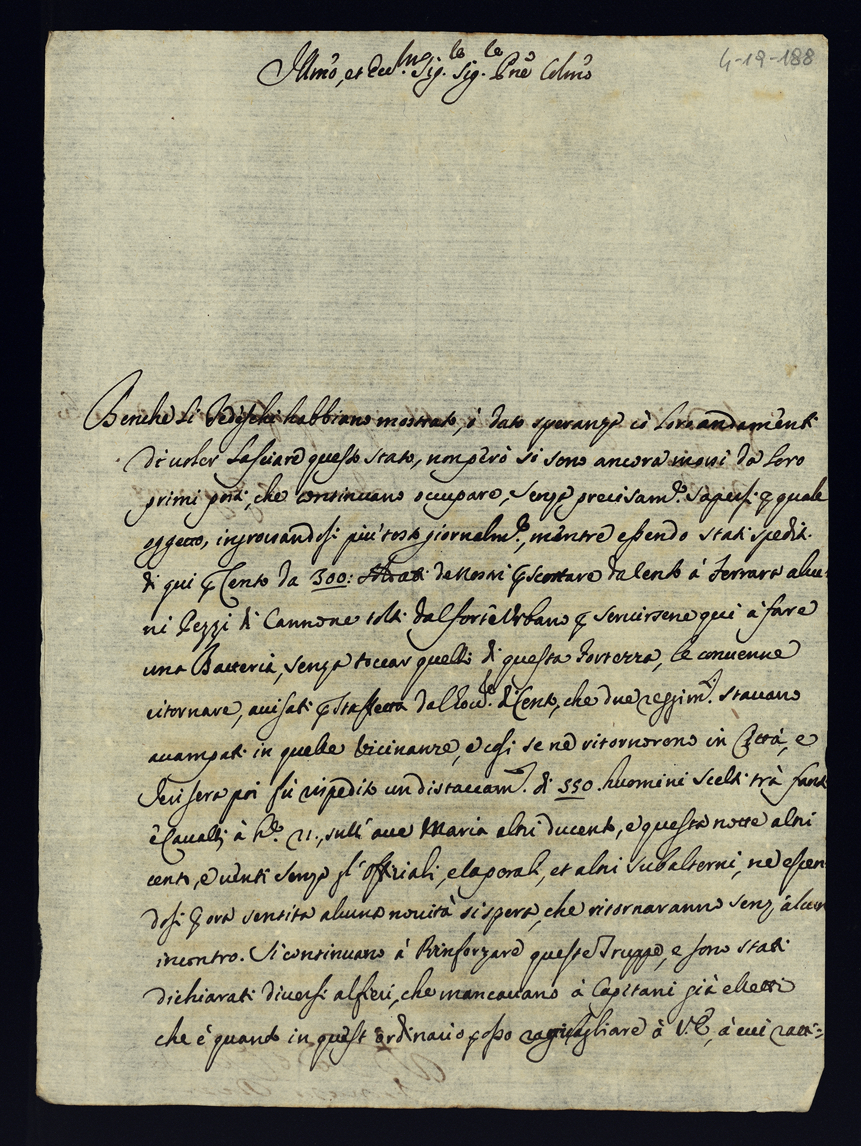 4-19-188
Illmo, et Ecc. Sig. Sig. Pne Colmo
Benche li Tedeschi habbiano mostrato, ò dato speranza cò loro andamenti
di voler lasciare questo stato, non però si sono ancora mossi da loro
primi posti, che continuano occupare, senza precisam.te sapersi p quale
oggetto, ingrossandosi più tosto giornalm.te, mentre essendo stati spediti
di qui p Cento da 300: de nostri p scortare da Cento à Ferrara alcu-
ni Pezzi di Cannone tolti dal forte Urbano p servirsene qui à fare
una Batteria, senza toccar quelli di questa Fortezza, le convenne
ritornare, avisati p staffetta dal di Cento, che due reggim.ti stavano
acampati in quelle vicinanze, e così se ne ritornorono in Città, e
Jeri sera poi fù rispedito un distaccam.to di 550 huomini scelti trà fanti
e Cavalli à h.re 21., sull' ave Maria altri ducento, e questa notte altri
cento, e venti senza gl' Offiziali, e Caporali, et altri subalterni, ne essen
dosi p ora sentita alcuna novità si spera, che ritornaranno senz' alcun
incontro. Si continuano à Rinforzare queste Truppe, e sono stati
dichiarati diversi alfieri, che mancavano à Capitani già eletti
che è quando in quest' ordinario posso ragguagliare à V.E., à cui ratti-